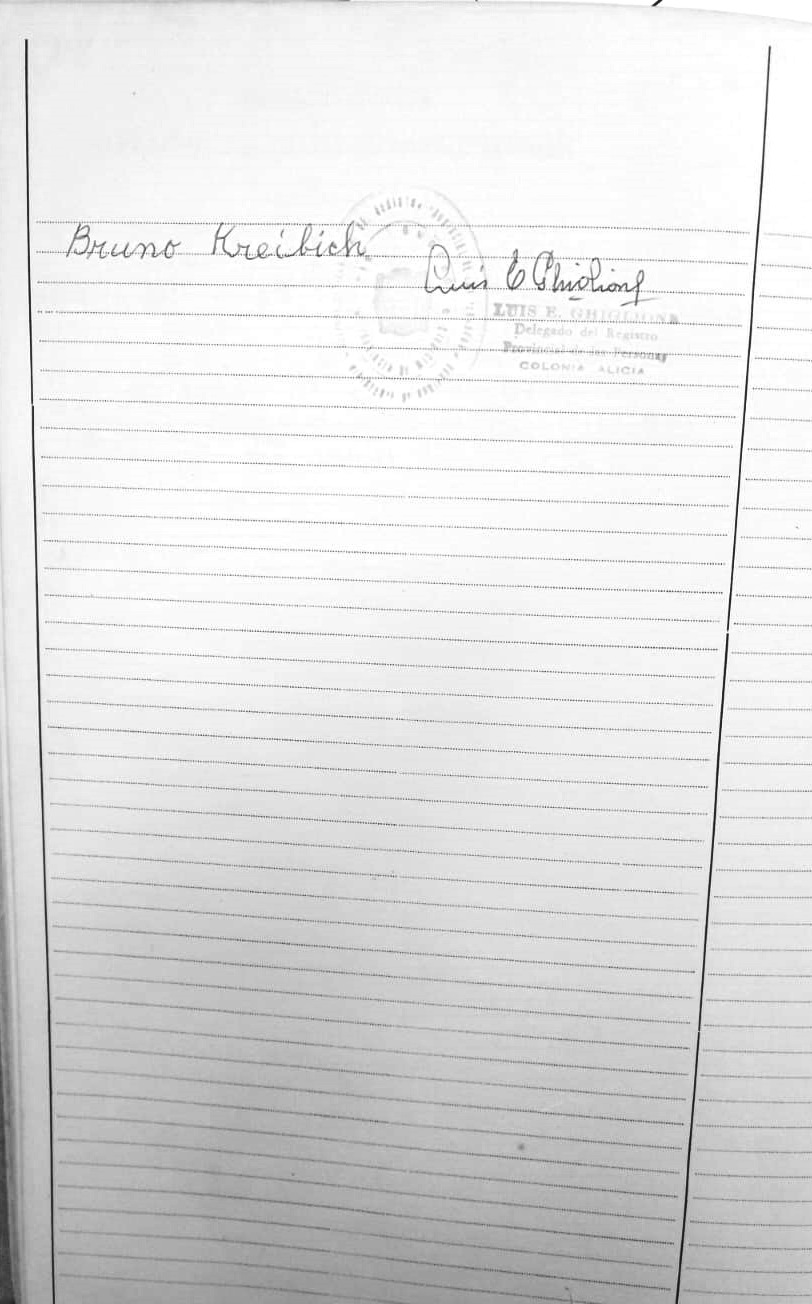 Bruno Kreibich
Luis E Ghiglione
LUIS E. GHIGLIONE
Delegado del Registro
Provincial de las Personas
COLONIA ALICIA